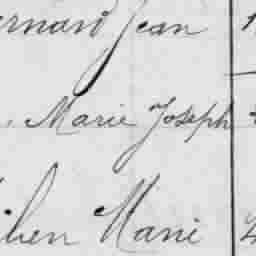 ernard Jean
Marie Joseph
lien Marie